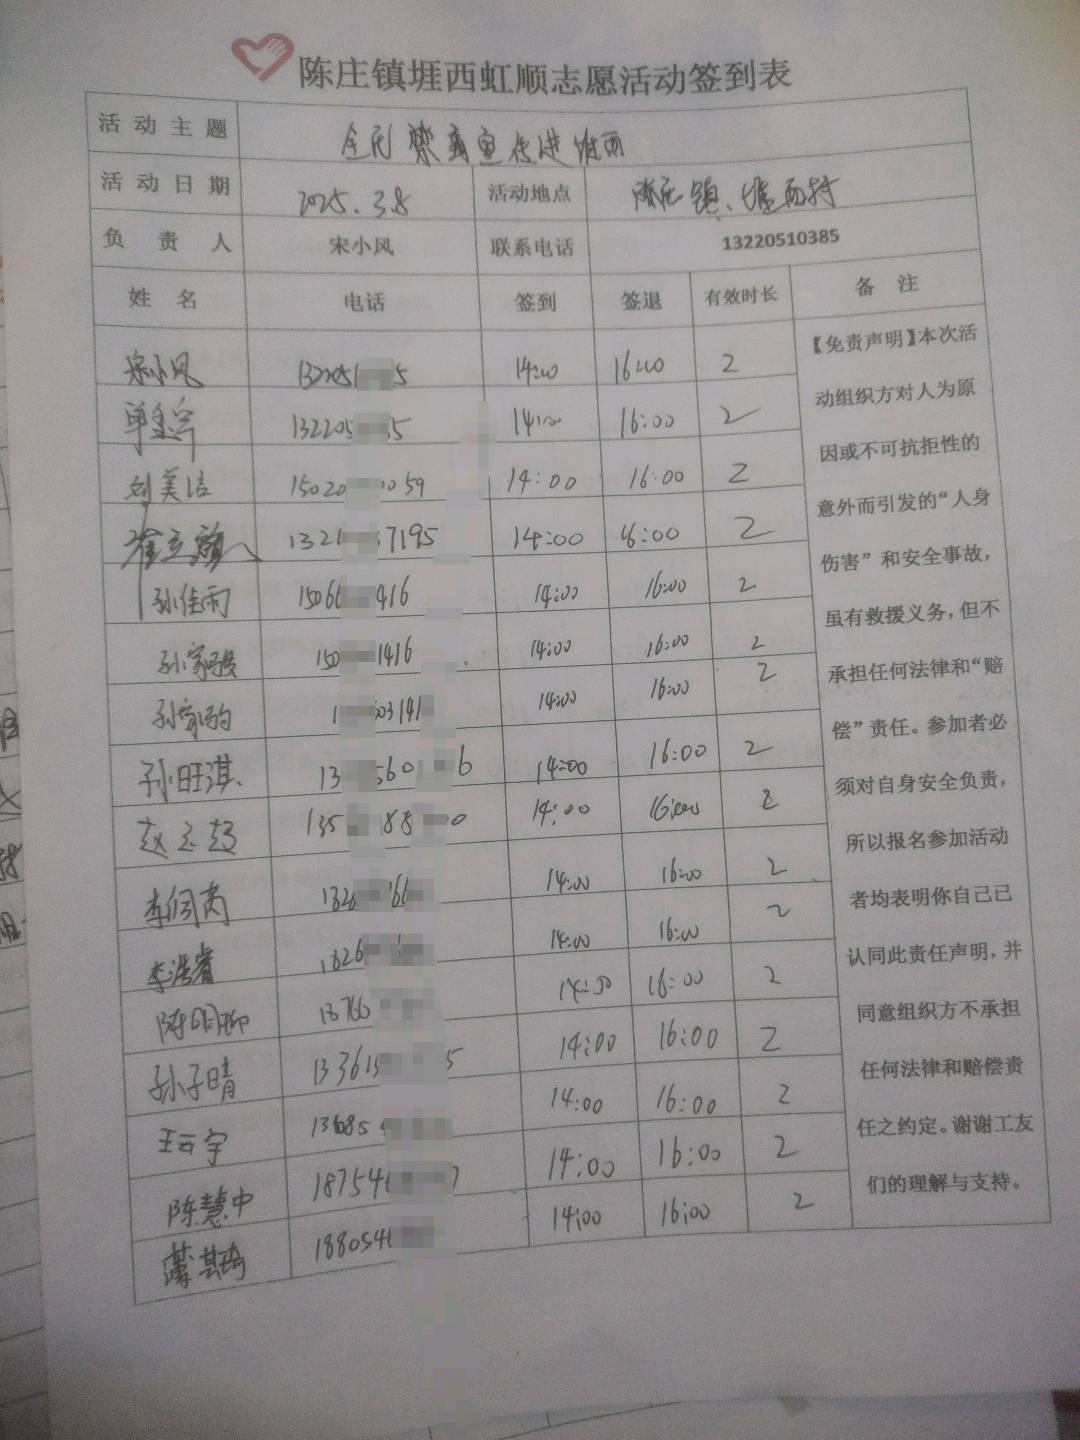 陈庄镇堐西虹顺志愿活动签到表
活动主题 全民禁毒宣传进堐西
活动日期 2025.3.8 活动地点 陈庄镇、堐西村
负责人 宋小风 联系电话 13220510385
姓名 电话 签到 签退 有效时长 备注
宋小风 132205 5 14:00 16:00 2
单 132205 5 14:00 16:00 2
刘美洁 15020 059 14:00 16:00 2
崔立 1321 7195 14:00 16:00 2
孙佳雨 15066 416 14:00 16:00 2
孙家 150 1416 14:00 16:00 2
孙家 1 03141 14:00 16:00 2
孙旺淇 13 560 6 14:00 16:00 2
赵 135 188 0 14:00 16:00 2
李 166 14:00 16:00 2
李浩睿 14:00 16:00 2
陈明 13766 16:00 2
孙子晴 13361 5 14:00 16:00 2
王云宇 13685 14:00 16:00 2
陈慧中 18754 14:00 16:00 2
188054 14:00 16:00 2
【免责声明】本次活
动组织方对人为原
因或不可抗拒性的
意外而引发的“人身
伤害”和安全事故，
虽有救援义务，但不
承担任何法律和“赔
偿”责任。参加者必
须对自身安全负责，
所以报名参加活动
者均表明你自己已
认同此责任声明，并
同意组织方不承担
任何法律和赔偿责
任之约定。谢谢工友
们的理解与支持。